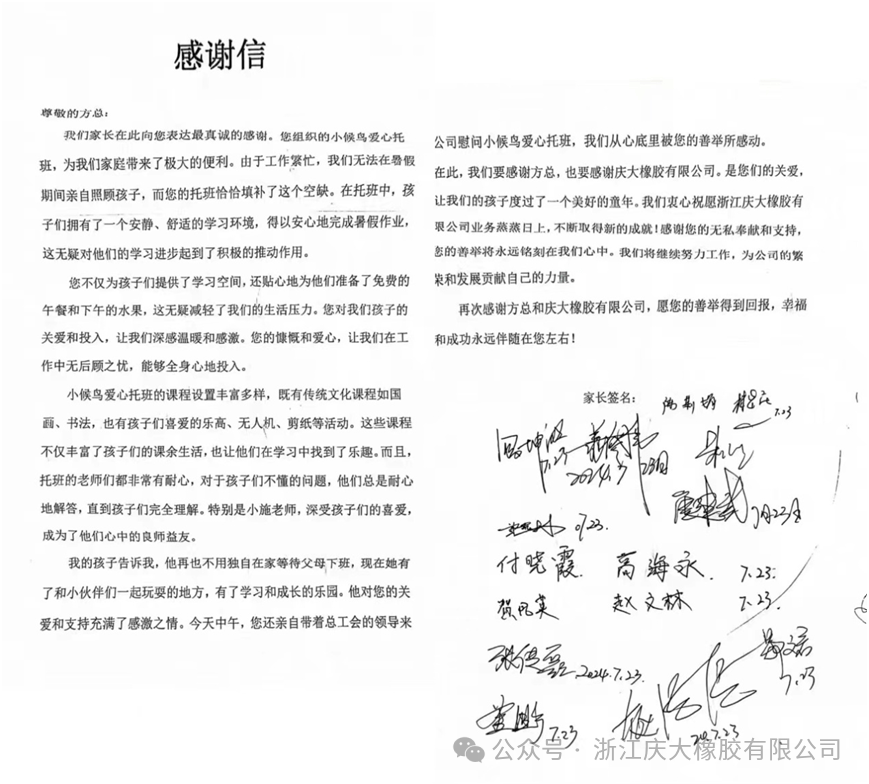 感谢信
尊敬的方总：
我们家长在此向您表达最真诚的感谢。您组织的小候鸟爱心托
班，为我们家庭带来了极大的便利。由于工作繁忙，我们无法在暑假
期间亲自照顾孩子，而您的托班恰恰填补了这个空缺。在托班中，孩
子们拥有了一个安静、舒适的学习环境，得以安心地完成暑假作业，
这无疑对他们的学习进步起到了积极的推动作用。
您不仅为孩子们提供了学习空间，还贴心地为他们准备了免费的
午餐和下午的水果，这无疑减轻了我们的生活压力。您对我们孩子的
关爱和投入，让我们深感温暖和感激。您的慷慨和爱心，让我们在工
作中无后顾之忧，能够全身心地投入。
小候鸟爱心托班的课程设置丰富多样，既有传统文化课程如国
画、书法，也有孩子们喜爱的乐高、无人机、剪纸等活动。这些课程
不仅丰富了孩子们的课余生活，也让他们在学习中找到了乐趣。而且，
托班的老师们都非常有耐心，对于孩子们不懂的问题，他们总是耐心
地解答，直到孩子们完全理解。特别是小施老师，深受孩子们的喜爱，
成为了他们心中的良师益友。
我的孩子告诉我，他再也不用独自在家等待父母下班，现在她有
了和小伙伴们一起玩耍的地方，有了学习和成长的乐园。他对您的关
爱和支持充满了感激之情。今天中午，您还亲自带着总工会的领导来
公司慰问小候鸟爱心托班，我们从心底里被您的善举所感动。
在此，我们要感谢方总，也要感谢庆大橡胶有限公司。是您们的关爱，
让我们的孩子度过了一个美好的童年。我们衷心祝愿浙江庆大橡胶有
限公司业务蒸蒸日上，不断取得新的成就！感谢您的无私奉献和支持，
您的善举将永远铭刻在我们心中。我们将继续努力工作，为公司的繁
荣和发展贡献自己的力量。
再次感谢方总和庆大橡胶有限公司，愿您的善举得到回报，幸福
和成功永远伴随在您左右！
家长签名：
7.23
7.23
2024.7
23日
7月23日
7.23.
付晓霞 高海永. 7.23.
贺凤英 赵文林 7.23.
张德磊 2024.7.23.
7.23
7.23
7.23
公众号 · 浙江庆大橡胶有限公司